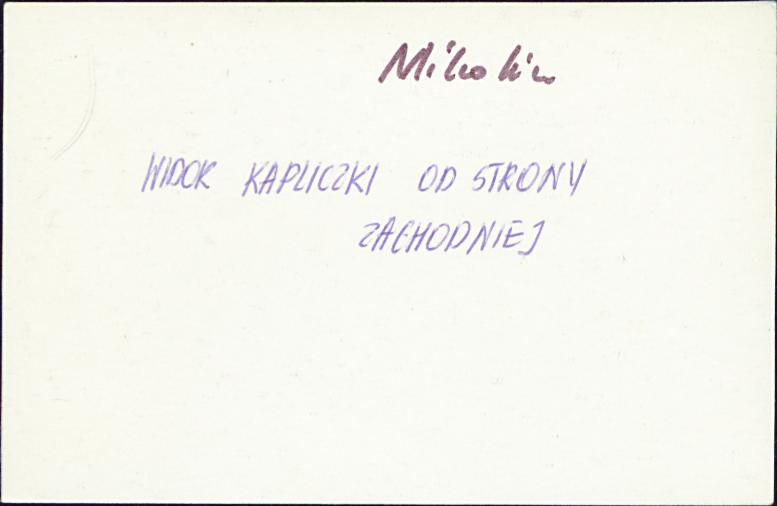 WIDOK KAPLICZKI OD STRONY
ZACHODNIEJ